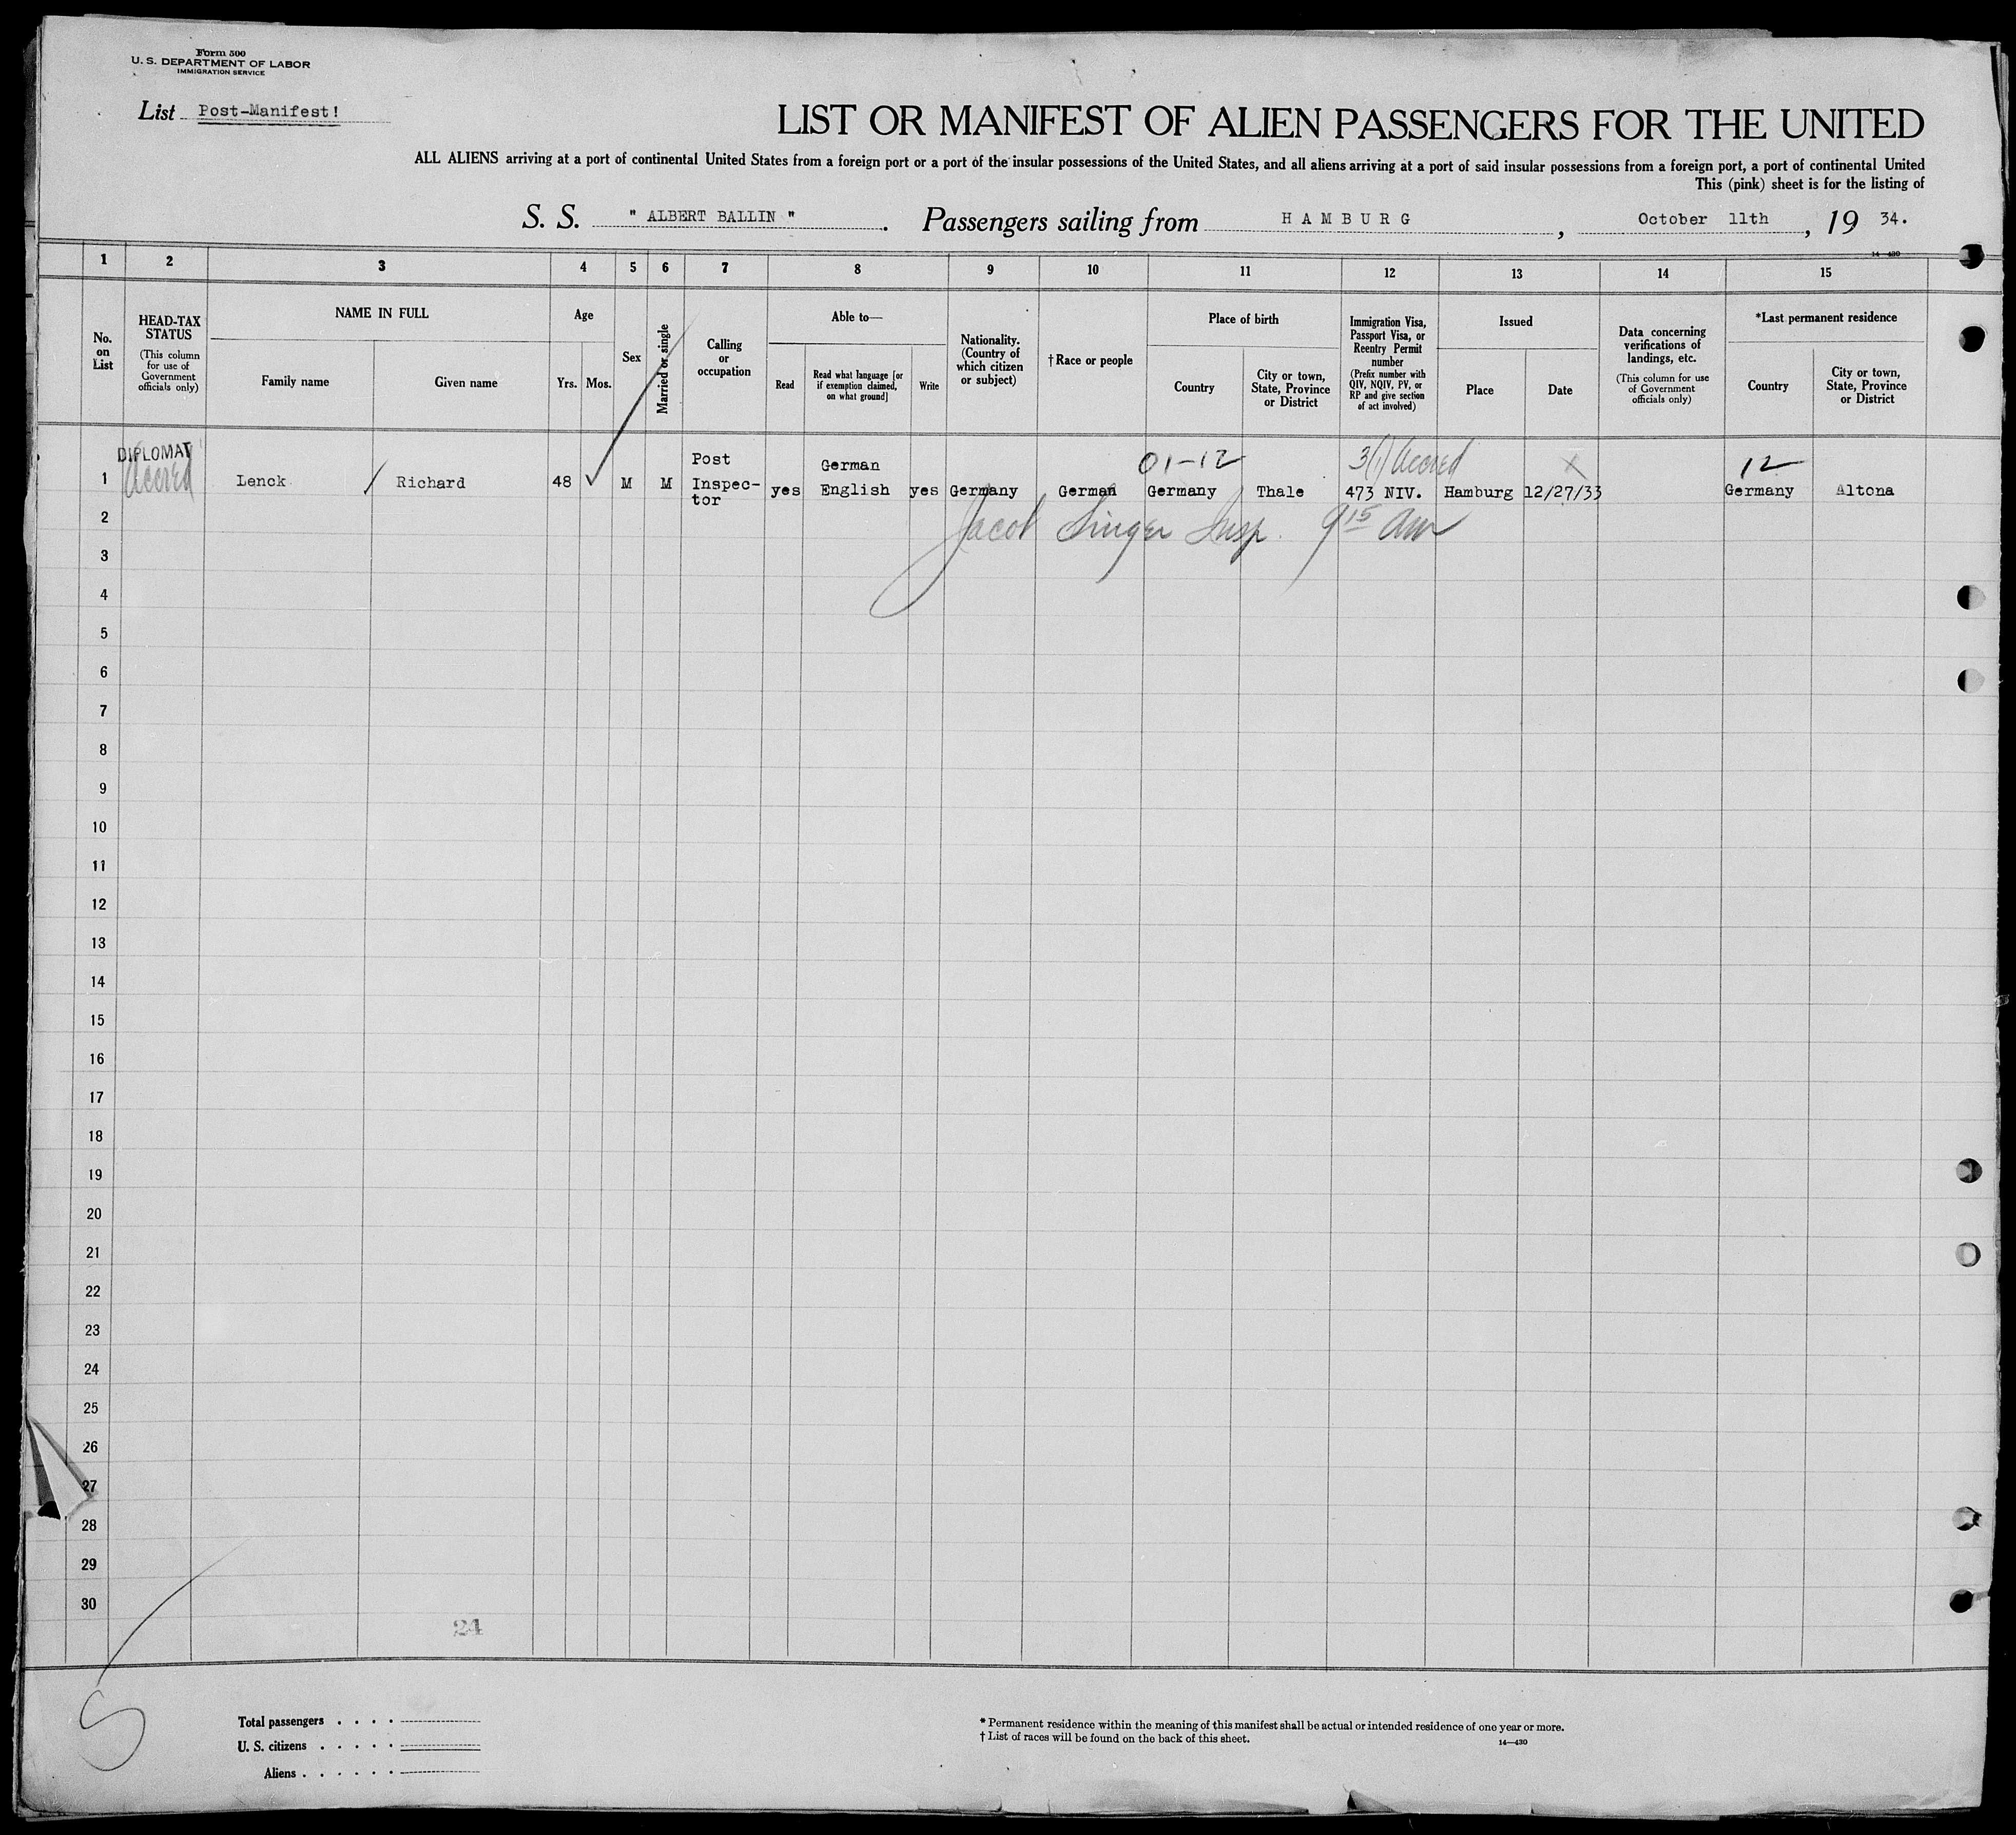 Form 500
U. S. DEPARTMENT OF LABOR
IMMIGRATION SERVICE
List Post-Manifest!
LIST OR MANIFEST OF ALIEN PASSENGERS FOR THE UNITED
ALL ALIENS arriving at a port of continental United States from a foreign port or a port of the insular possessions of the United States, and all aliens arriving at a port of said insular possessions from a foreign port, a port of continental United
This (pink) sheet is for the listing of
S. S. " ALBERT BALLIN " . Passengers sailing from HAMBURG , October 11th , 19 34.
14-430
1 2 3 4 5 6 7 8 9 10 11 12 13 14 15
No. on List
HEAD-TAX STATUS (This column for use of Government officials only)
NAME IN FULL
Family name
Given name
Age
Yrs. Mos.
Sex
Married or single
Calling or occupation
Able to—
Read
Read what language [or if exemption claimed, on what ground]
Write
Nationality. (Country of which citizen or subject)
†Race or people
Place of birth
Country
City or town, State, Province or District
Immigration Visa, Passport Visa, or Reentry Permit number (Prefix number with QIV, NQIV, PV, or RP and give section of act involved)
Issued
Place
Date
Data concerning verifications of landings, etc. (This column for use of Government officials only)
*Last permanent residence
Country
City or town, State, Province or District
DIPLOMAT
Accred
01-12
3(1) Accred
X
12
1 Lenck / Richard 48 ✓ M M Post Inspec- tor yes German English yes Germany German Germany Thale 473 NIV. Hamburg 12/27/33 Germany Altona
Jacob Singer Insp. 9 15 am
2
3
4
5
6
7
8
9
10
11
12
13
14
15
16
17
18
19
20
21
22
23
24
25
26
27
28
29
30
24
Total passengers . . . .
U. S. citizens . . . . .
Aliens . . . . . .
* Permanent residence within the meaning of this manifest shall be actual or intended residence of one year or more.
† List of races will be found on the back of this sheet.
14—430